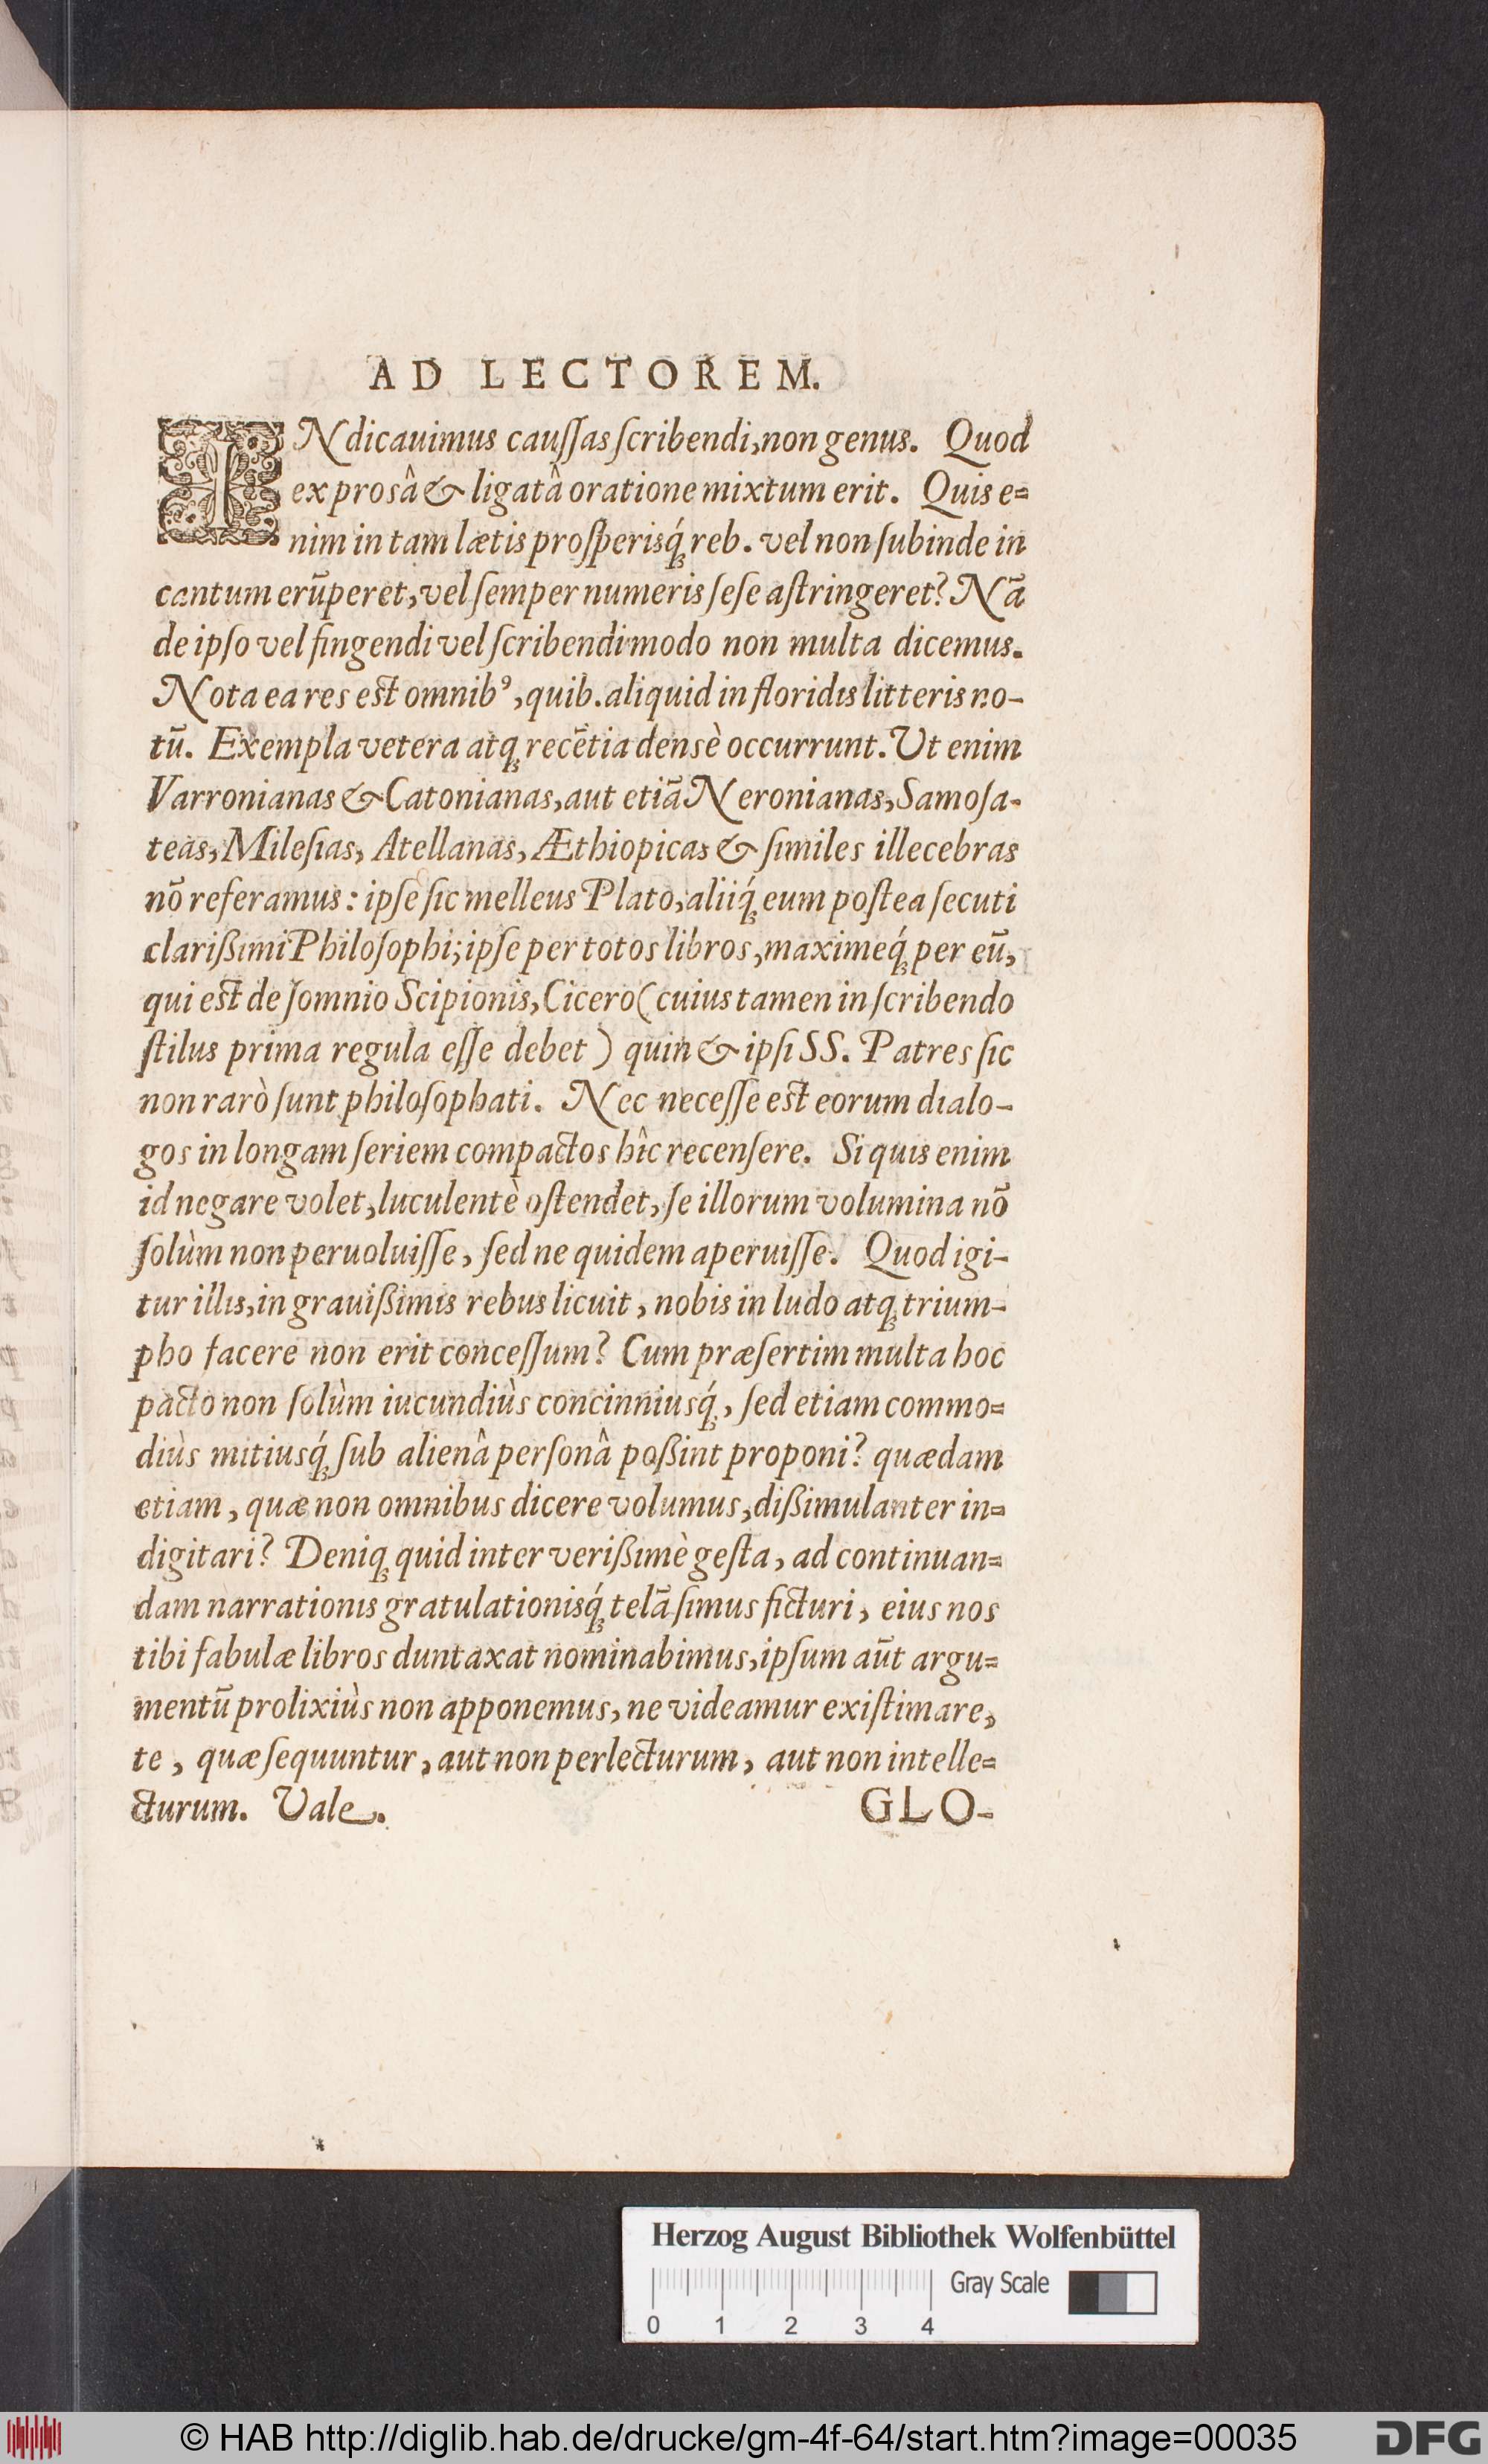 AD LECTOREM.
INdicauimus cauſſas ſcribendi, non genus. Quod
ex prosâ & ligatâ oratione mixtum erit. Quis e=
nim in tam lætis proſperisq́ꝫ reb. vel non ſubinde in
cantum erūperet, vel ſemper numeris ſeſe aſtringeret? Nā
de ipſo vel fingendi vel ſcribendi modo non multa dicemus.
Nota ea res est omnibꝰ, quib. aliquid in floridis litteris no-
tū. Exempla vetera atqꝫ recētia densè occurrunt. Ut enim
Varronianas & Catonianas, aut etiā Neronianas, Samoſa-
teas, Mileſias, Atellanas, Æthiopicas & ſimiles illecebras
nō referamus: ipſe ſic melleus Plato, aliiq́ꝫ eum poſtea ſecuti
clarißimi Philoſophi; ipſe per totos libros, maximeq́ꝫ per eū,
qui est de ſomnio Scipionis, Cicero (cuius tamen in ſcribendo
ſtilus prima regula eſſe debet) quin & ipſi SS. Patres ſic
non rarò ſunt philoſophati. Nec neceſſe est eorum dialo-
gos in longam ſeriem compactos hîc recenſere. Si quis enim
id negare volet, luculentè oſtendet, ſe illorum volumina nō
ſolùm non peruoluiſſe, ſed ne quidem aperuiſſe. Quod igi-
tur illis, in grauißimis rebus licuit, nobis in ludo atqꝫ trium-
pho facere non erit conceſſum? Cum præſertim multa hoc
pacto non ſolùm iucundiùs concinniusq́ꝫ, ſed etiam commo=
diùs mitiusq́ꝫ ſub alienâ perſonâ poßint proponi? quædam
etiam, quæ non omnibus dicere volumus, dißimulanter in=
digitari? Deniqꝫ quid inter verißimè geſta, ad continuan=
dam narrationis gratulationisq́ꝫ telā ſimus ficturi, eius nos
tibi fabulæ libros duntaxat nominabimus, ipſum aūt argu=
mentū prolixiùs non apponemus, ne videamur exiſtimare,
te, quæ ſequuntur, aut non perlecturum, aut non intelle=
cturum. Vale. GLO-
Herzog August Bibliothek Wolfenbüttel
Gray Scale
0 1 2 3 4
© HAB http://diglib.hab.de/drucke/gm-4f-64/start.htm?image=00035 DFG